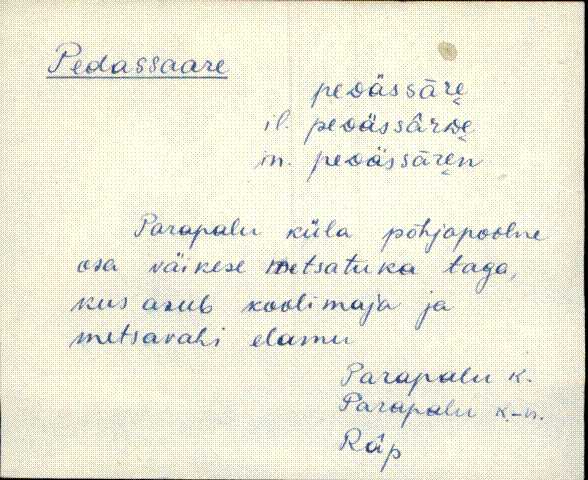 Pedassaare
peᴅässāre̬
il. peᴅässârᴅe̬
in. peᴅässāre̬n
Parapalu küla põhjapoolne
osa väikese metsatuka taga,
kus asub koolimaja ja
metsavahi elamu
Parapalu k.
Parapalu k.-n.
Räp